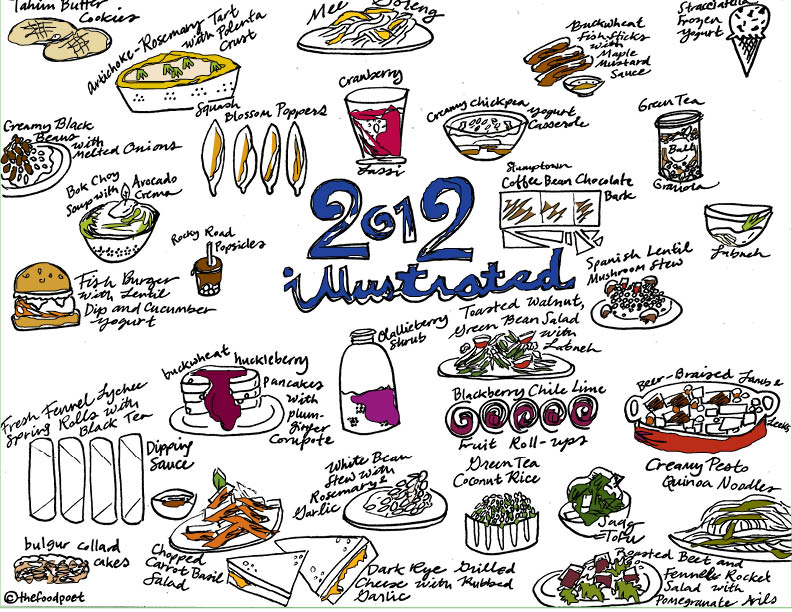 Tahini Butter
Cookies
Artichoke-Rosemary Tart
with Polenta
Crust
Mee Goreng
Buckwheat
Fish Sticks
with
Maple
Mustard
Sauce
Stracciatella
Frozen
Yogurt
Creamy Black
Beans
with
Melted Onions
Squash
Blossom Poppers
Cranberry
Lassi
Creamy Chickpea
Yogurt
Casserole
Green Tea
Ball
Granola
Bok Choy
Soup with
Avocado
Crema
Stumptown
Coffee Bean Chocolate
Bark
Labneh
Rocky Road
Popsicles
2012
illustrated
Fish Burger
with Lentil
Dip and Cucumber
Yogurt
Spanish Lentil
Mushroom Stew
Olallieberry
Shrub
Toasted Walnut,
Green Bean Salad
with
Labneh
buckwheat huckleberry
pancakes
with
plum-
ginger
Compote
Blackberry Chile Lime
Fruit Roll-ups
Beer-Braised Lamb &
Leeks
Fresh Fennel Lychee
Spring Rolls with
Black Tea
Dipping
Sauce
White Bean
Stew with
Rosemary &
Garlic
Green Tea
Coconut Rice
Saag
Tofu
Creamy Pesto
Quinoa Noodles
bulgur collard
cakes
Chopped
Carrot Basil
Salad
Dark Rye Grilled
Cheese with Rubbed
Garlic
Roasted Beet and
Fennel Rocket
Salad with
Pomegranate Arils
©thefoodpoet